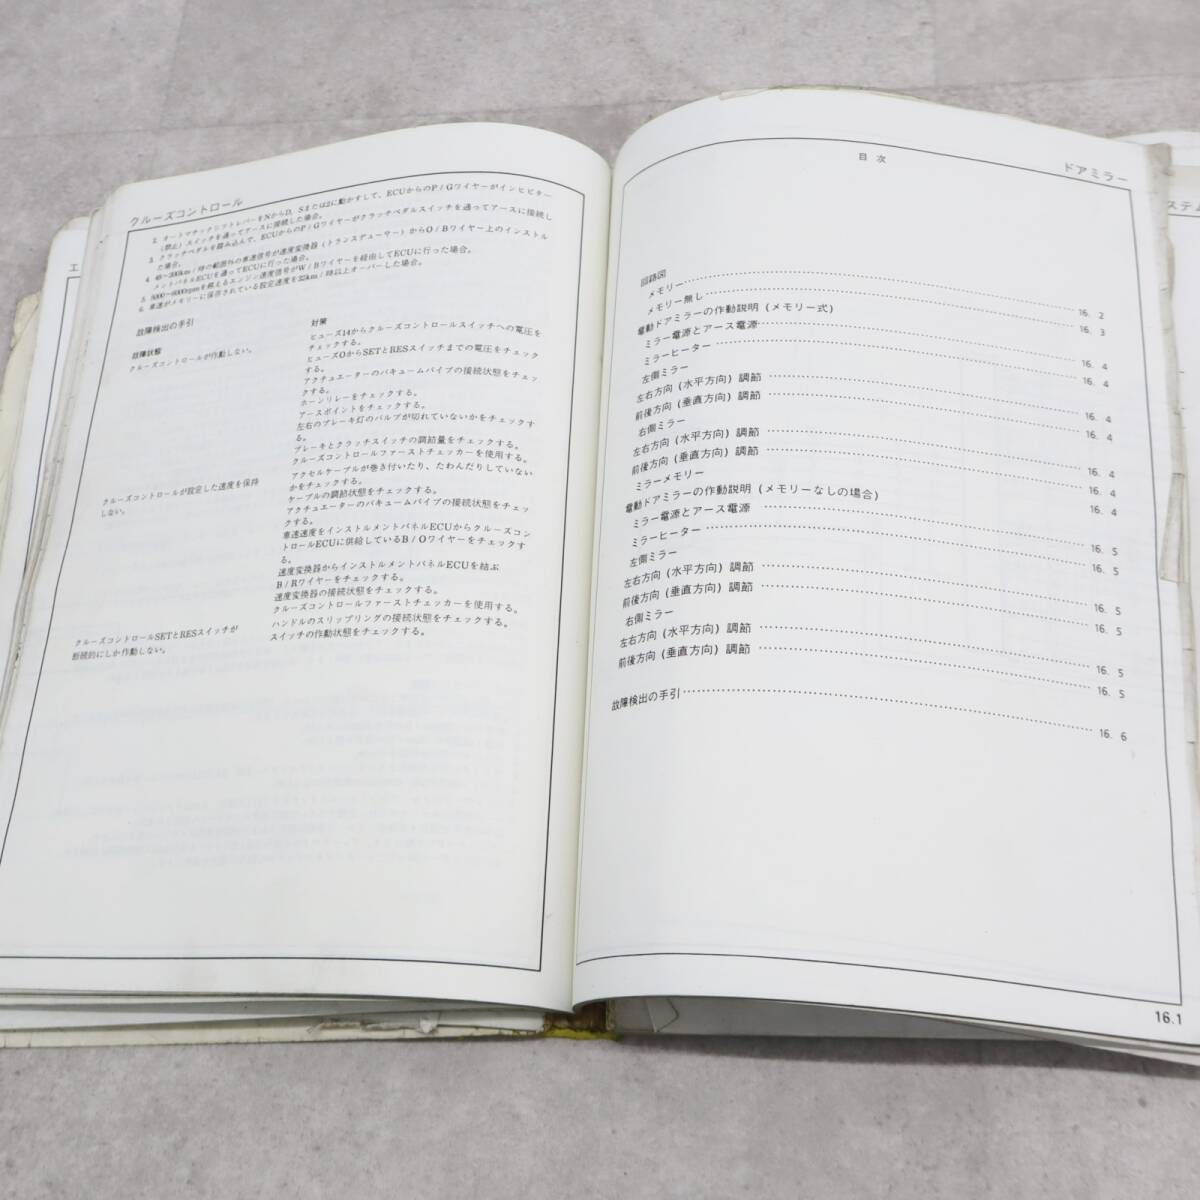 エ
クルーズコントロール
2. オートマチックシフトレバーをNからD、Sまたは2に動かすして、ECUからのP/Gワイヤーがインヒビター
(禁止)スイッチを通ってアースに接続した場合。
3. クラッチペダルを踏み込んで、ECUからのP/Gワイヤーがクラッチペダルスイッチを通ってアースに接続し
た場合。
4. 45〜200km/時の範囲外の車速信号が速度変換器(トランスデューサー)からO/Bワイヤー上のインストル
メントパネルECUを通ってECUに行った場合。
5. 5000〜6000rpmを超えるエンジン速度信号がW/Bワイヤーを経由してECUに行った場合。
6. 車速がメモリーに保存されている設定速度を32km/時以上オーバーした場合。
故障検出の手引
故障状態
対策
クルーズコントロールが作動しない。
ヒューズ14からクルーズコントロールスイッチへの電圧を
チェックする。
ヒューズOからSETとRESスイッチまでの電圧をチェック
する。
アクチュエーターのバキュームパイプの接続状態をチェッ
クする。
ホーンリレーをチェックする。
アースポイントをチェックする。
左右のブレーキ灯のバルブが切れていないかをチェックす
る。
ブレーキとクラッチスイッチの調節量をチェックする。
クルーズコントロールファーストチェッカーを使用する。
クルーズコントロールが設定した速度を保持
しない。
アクセルケーブルが巻き付いたり、たわんだりしていない
かをチェックする。
ケーブルの調節状態をチェックする。
アクチュエーターのバキュームパイプの接続状態をチェッ
クする。
車速速度をインストルメントパネルECUからクルーズコン
トロールECUに供給しているB/Oワイヤーをチェックす
る。
速度変換器からインストルメントパネルECUを結ぶ
B/Rワイヤーをチェックする。
速度変換器の接続状態をチェックする。
クルーズコントロールファーストチェッカーを使用する。
クルーズコントロールSETとRESスイッチが
断続的にしか作動しない。
ハンドルのスリップリングの接続状態をチェックする。
スイッチの作動状態をチェックする。
目次
ドアミラー
回路図
メモリー 16. 2
メモリー無し 16. 3
電動ドアミラーの作動説明(メモリー式)
ミラー電源とアース電源 16. 4
ミラーヒーター 16. 4
左側ミラー
左右方向(水平方向)調節 16. 4
前後方向(垂直方向)調節 16. 4
右側ミラー
左右方向(水平方向)調節 16. 4
前後方向(垂直方向)調節 16. 4
ミラーメモリー 16. 4
電動ドアミラーの作動説明(メモリーなしの場合)
ミラー電源とアース電源 16. 5
ミラーヒーター 16. 5
左側ミラー
左右方向(水平方向)調節 16. 5
前後方向(垂直方向)調節 16. 5
右側ミラー
左右方向(水平方向)調節 16. 5
前後方向(垂直方向)調節 16. 5
故障検出の手引 16. 6
16.1
ステム